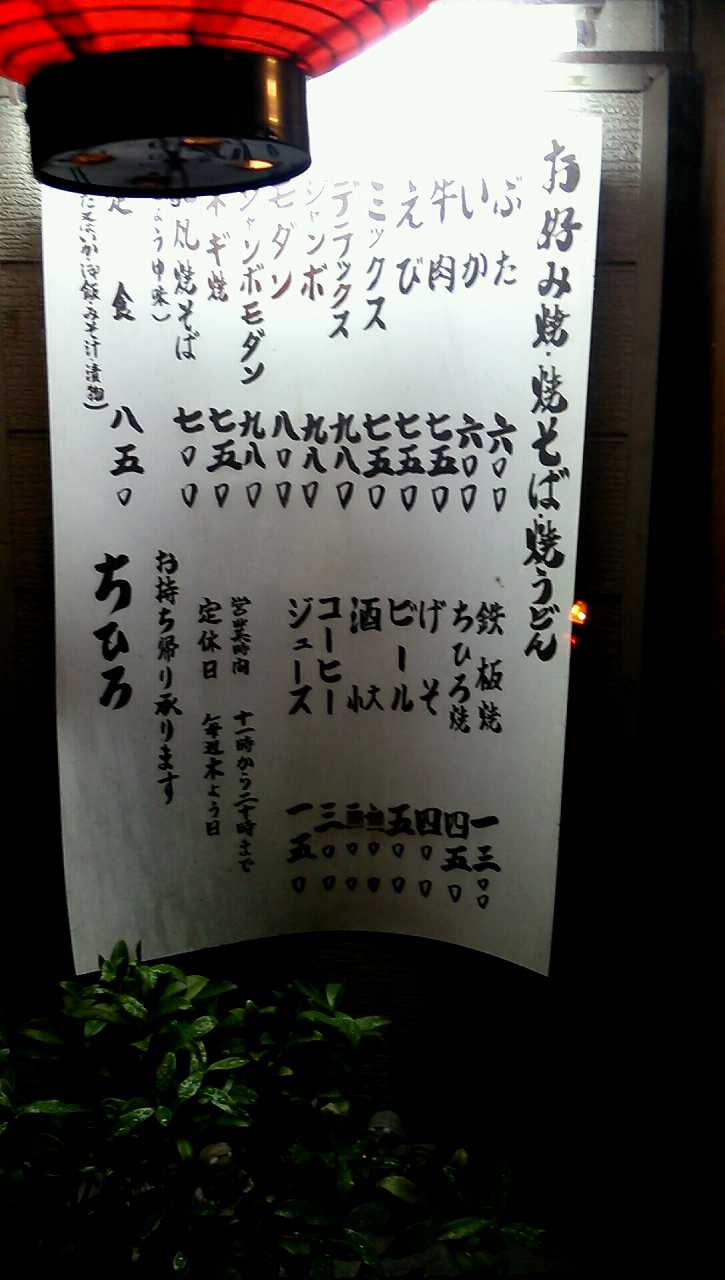 お好み焼・焼そば・焼うどん
ぶた 六〇〇
いか 六〇〇
牛肉 七五〇
えび 七五〇
ミックス 七五〇
デラックス 九八〇
ジャンボ 九八〇
モダン 八〇〇
ジャンボモダン 九八〇
ネギ焼 七五〇
風焼そば 七〇〇
定食 八五〇
又はいか・御飯・みそ汁・漬物)
鉄板焼 一三〇〇
ちひろ焼 四五〇
げそ 四〇〇
ビール 五〇〇
酒 大 〇〇
小 〇〇
コーヒー 三〇〇
ジュース 一五〇
営業時間 十一時から二十時まで
定休日 毎週木よう日
お持ち帰り承ります
ちひろ